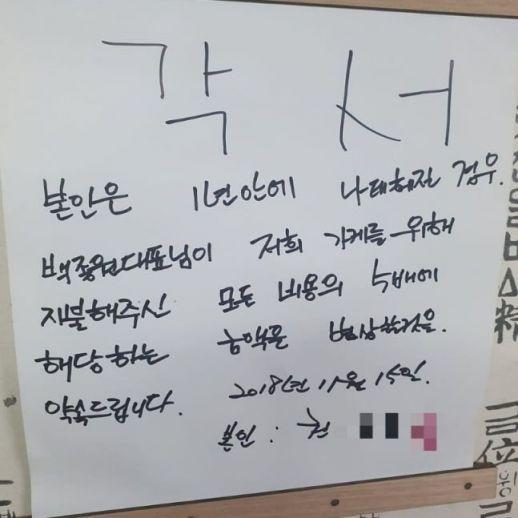 각 서
본인은 1년안에 나태해진 경우.
백종원대표님이 저희 가게를 위해
지불해주신 모든 비용의 5배에
해당하는 금액을 보상할것을
약속드립니다. 2018년 11월 15일.
본인 :